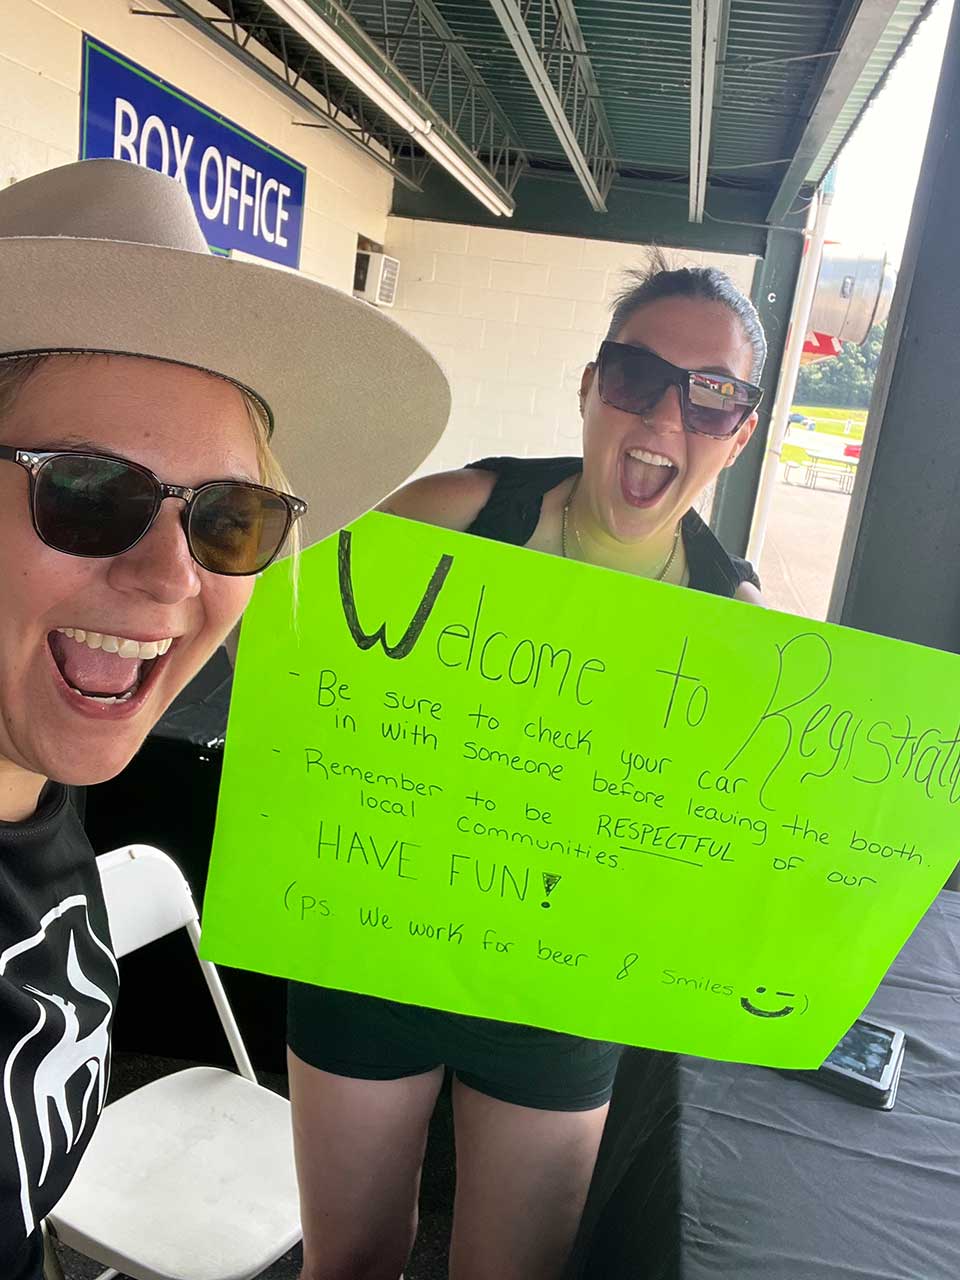 BOX OFFICE
C
Welcome to Registrati
- Be sure to check your car
in with someone before leaving the booth.
- Remember to be RESPECTFUL of our
local communities.
- HAVE FUN!
(p.s. we work for beer & smiles )